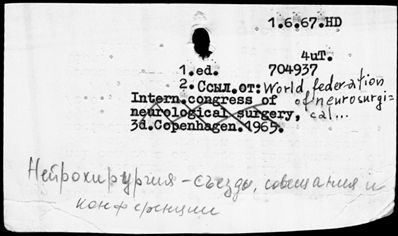 1.6.67.HD
4uT.
1.ed. 704937
2.Ссыл.от: World federation
Intern.congress of of neurosurgi=
neurological surgery, cal...
3d.Copenhagen.1965.
Нейрохирургия - съезды, совещания и
конференции